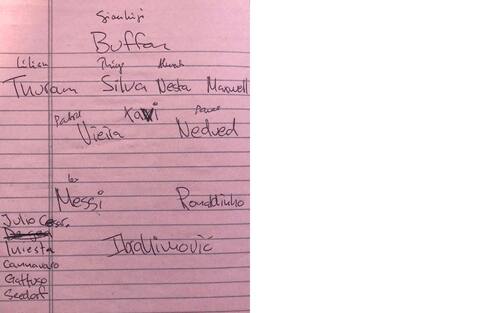 Gianluigi
Buffon
Lilian Thiago Alessandro
Thuram Silva Nesta Maxwell
Patrick Xavi Pavel
Vieira Nedved
Leo
Messi Ronaldinho
Julio Cesar
Iniesta Ibrahimović
Cannavaro
Gattuso
Seedorf